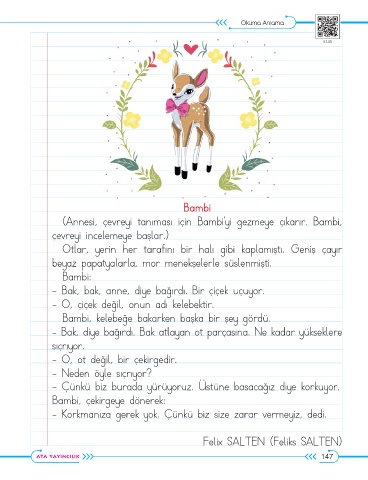 Okuma Anlama
Bambi
(Annesi, çevreyi tanıması için Bambi'yi gezmeye çıkarır. Bambi,
çevreyi incelemeye başlar.)
Otlar, yerin her tarafını bir halı gibi kaplamıştı. Geniş çayır
beyaz papatyalarla, mor menekşelerle süslenmişti.
Bambi:
- Bak, bak, anne, diye bağırdı. Bir çiçek uçuyor.
- O, çiçek değil, onun adı kelebektir.
Bambi, kelebeğe bakarken başka bir şey gördü.
- Bak, diye bağırdı. Bak atlayan ot parçasına. Ne kadar yükseklere
sıçrıyor.
- O, ot değil, bir çekirgedir.
- Neden öyle sıçrıyor?
- Çünkü biz burada yürüyoruz. Üstüne basacağız diye korkuyor.
Bambi, çekirgeye dönerek:
- Korkmanıza gerek yok. Çünkü biz size zarar vermeyiz, dedi.
Felix SALTEN (Feliks SALTEN)
ATA YAYINCILIK
147